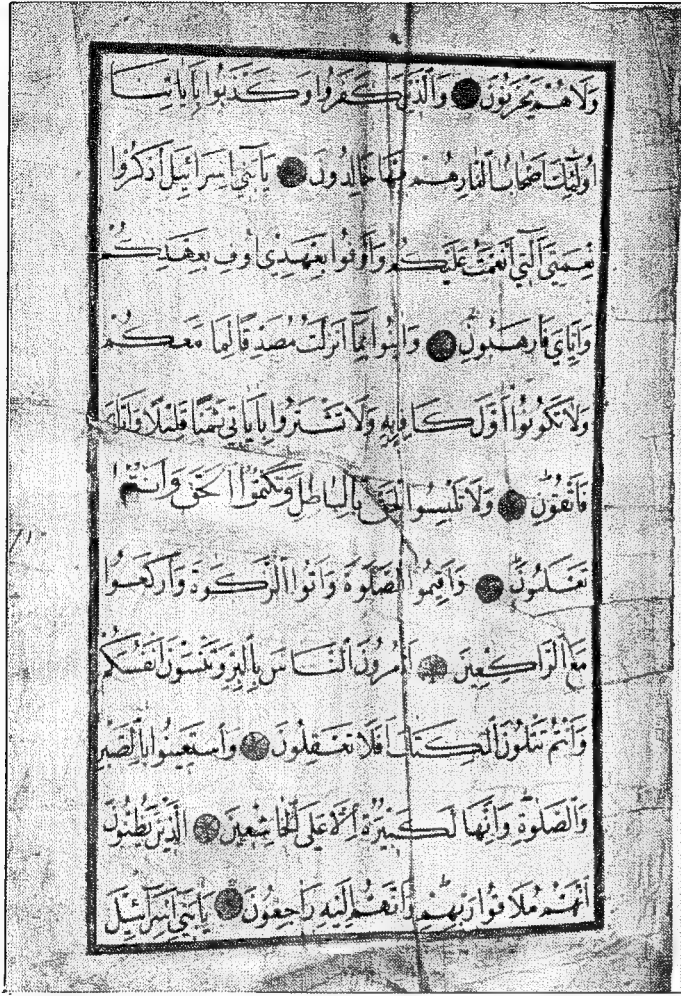 وَلَا هُمْ يَحْزَنُونَ وَالَّذِينَ كَفَرُوا وَكَذَّبُوا بِآيَاتِنَا
أُولَئِكَ أَصْحَابُ النَّارِ هُمْ فِيهَا خَالِدُونَ يَا بَنِي إِسْرَائِيلَ اذْكُرُوا
نِعْمَتِيَ الَّتِي أَنْعَمْتُ عَلَيْكُمْ وَأَوْفُوا بِعَهْدِي أُوفِ بِعَهْدِكُمْ
وَإِيَّايَ فَارْهَبُونِ وَآمِنُوا بِمَا أَنْزَلْتُ مُصَدِّقًا لِمَا مَعَكُمْ
وَلَا تَكُونُوا أَوَّلَ كَافِرٍ بِهِ وَلَا تَشْتَرُوا بِآيَاتِي ثَمَنًا قَلِيلًا وَإِيَّايَ
فَاتَّقُونِ وَلَا تَلْبِسُوا الْحَقَّ بِالْبَاطِلِ وَتَكْتُمُوا الْحَقَّ وَأَنْتُمْ
تَعْلَمُونَ وَأَقِيمُوا الصَّلَوةَ وَآتُوا الزَّكَوةَ وَارْكَعُوا
مَعَ الرَّاكِعِينَ أَتَأْمُرُونَ النَّاسَ بِالْبِرِّ وَتَنْسَوْنَ أَنْفُسَكُمْ
وَأَنْتُمْ تَتْلُونَ الْكِتَابَ أَفَلَا تَعْقِلُونَ وَاسْتَعِينُوا بِالصَّبْرِ
وَالصَّلَوةِ وَإِنَّهَا لَكَبِيرَةٌ إِلَّا عَلَى الْخَاشِعِينَ الَّذِينَ يَظُنُّونَ
أَنَّهُمْ مُلَاقُوا رَبِّهِمْ وَأَنَّهُمْ إِلَيْهِ رَاجِعُونَ يَا بَنِي إِسْرَائِيلَ